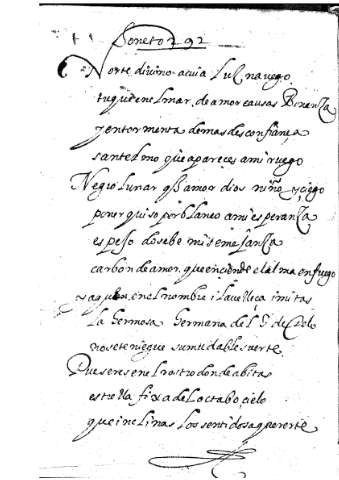 Soneto 292
Norte divino acuia Luz navego
tu que en el mar de amor causas Bonanza
y en tormenta de mas desconfiança
santelmo que apareçes a mi ruego
Negro Lunar q amor dios niño y ciego
poner quiso por blanco a mi esperanza
espejo do se be mi semejanza
carbon de amor que enciende el alma en fuego
en el nombre i la velleça imitas
La Hermosa Hermana de
no se te niegue suerte
Pues eres en el rostro donde abitas
estrella fixa de L octabo çielo
que inclinas Los sentidos a quererte